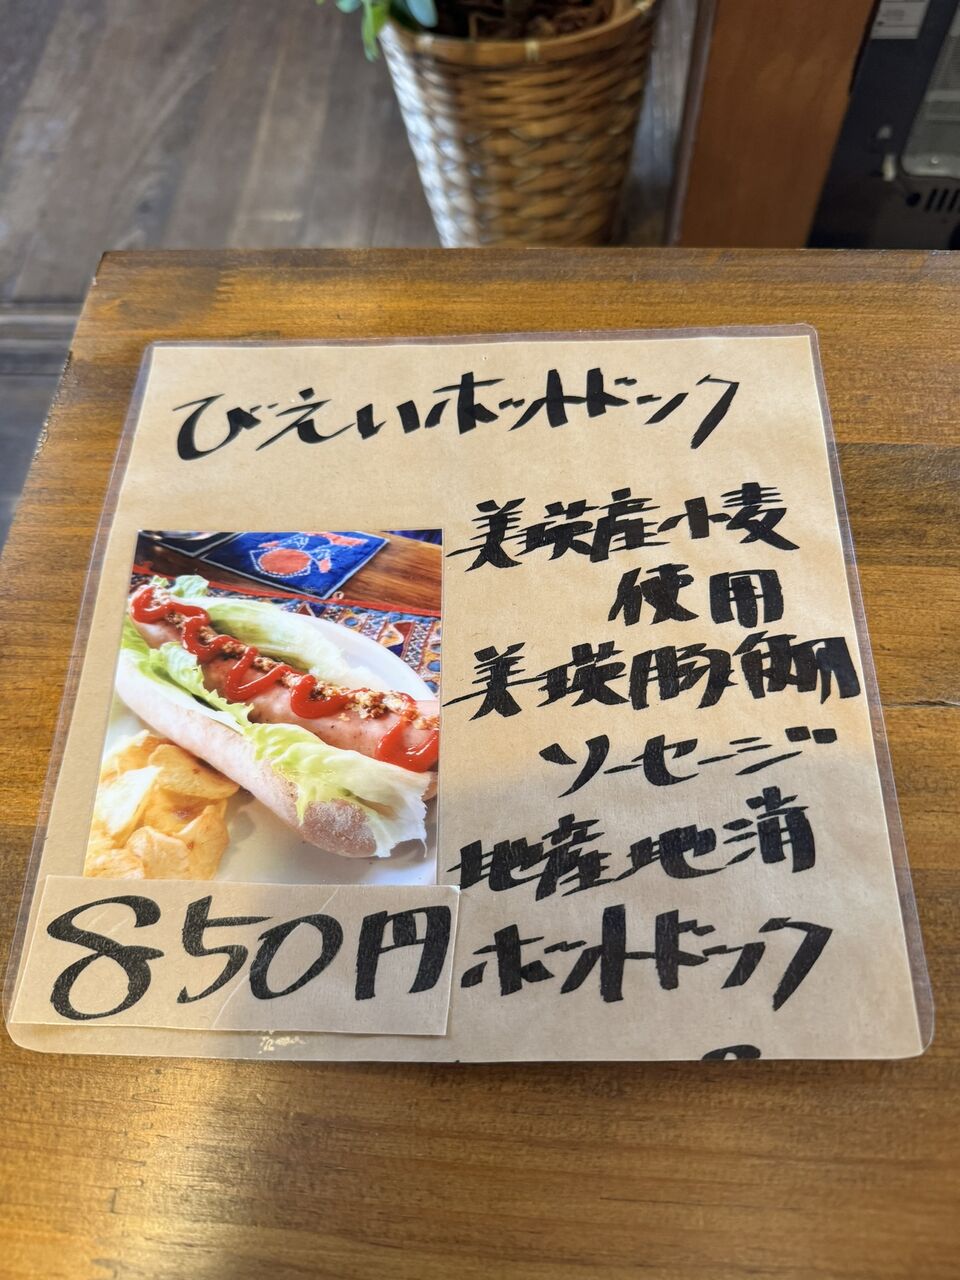 びえいホットドッグ
美瑛産小麦
使用
美瑛豚
ソーセージ
地産地消
ホットドッグ
850円